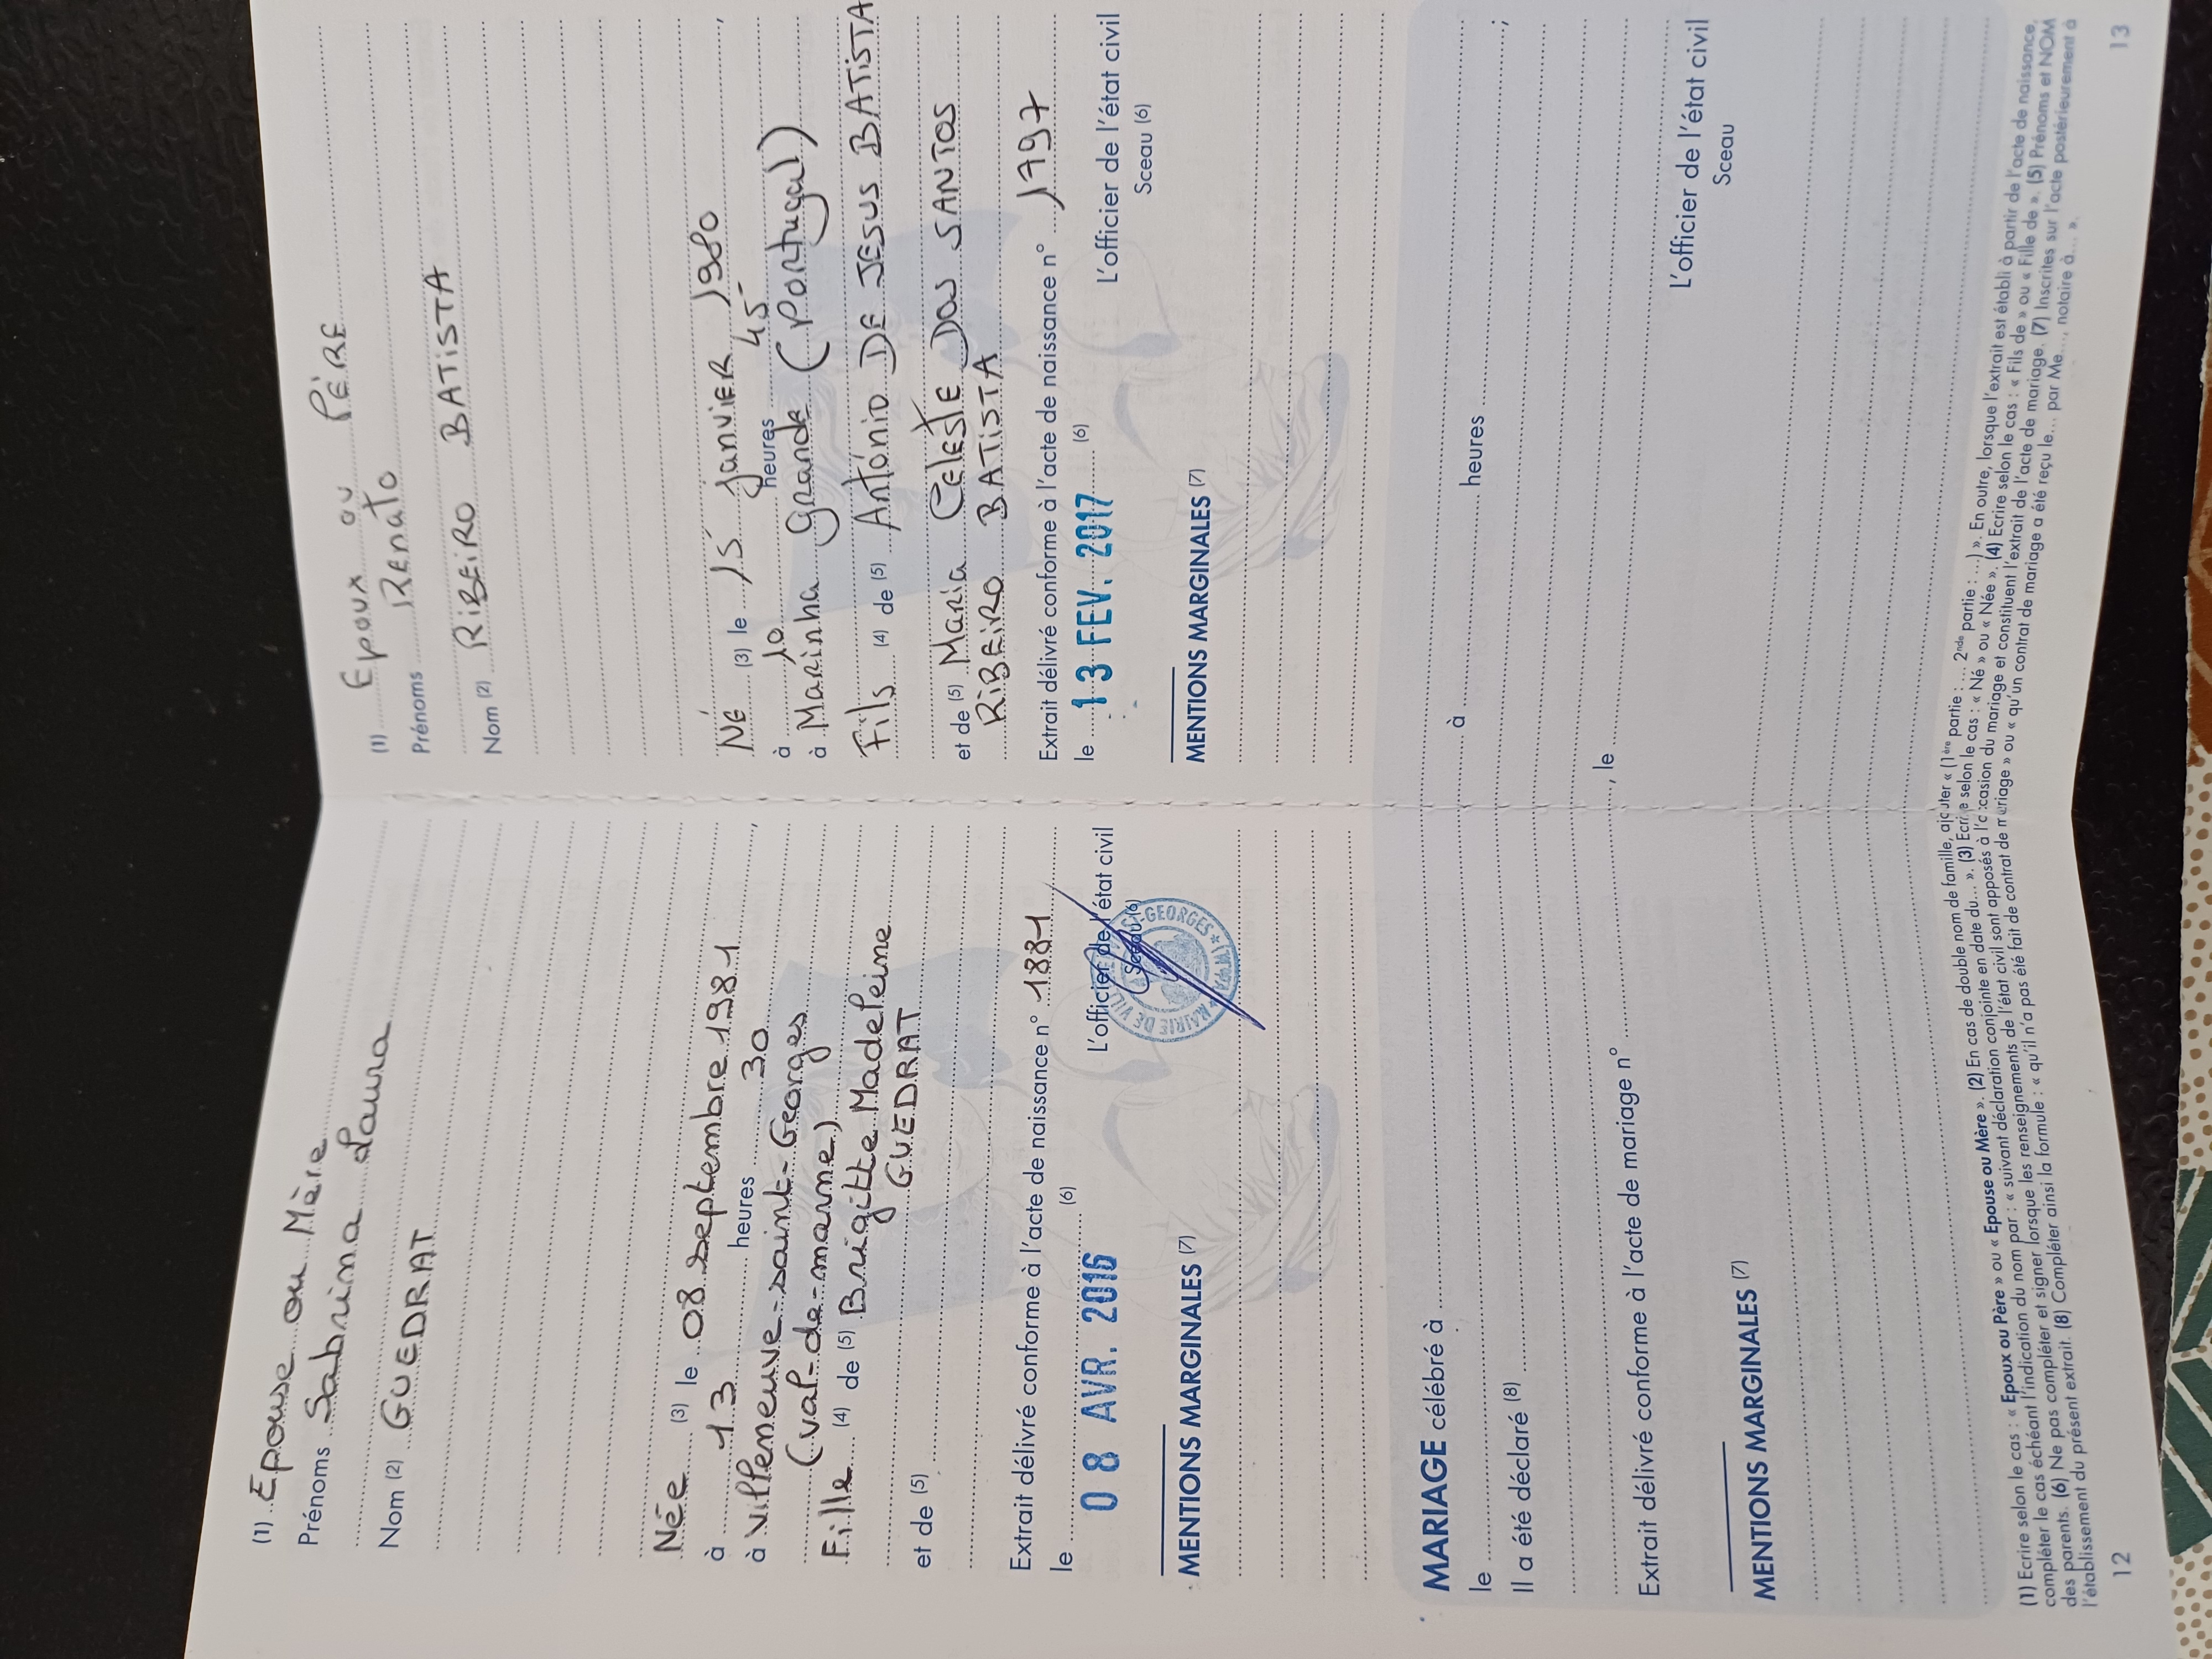 (1) Epouse ou Mère
Prénoms Sabrina Laura
Nom (2) GUEDRAT
Née (3) le 08 septembre 1981
à 13 heures 30,
à Villeneuve-saint-Georges
(Val-de-marne)
Fille (4) de (5) Brigitte Madeleine
GUEDRAT
et de (5)
Extrait délivré conforme à l'acte de naissance n° 1881
le 08 AVR. 2016 (6)
L'officier de l'état civil
Sceau (6)
MAIRIE DE VILLENEUVE-ST-GEORGES
MENTIONS MARGINALES (7)
(1) Epoux ou PÈRE
Prénoms Renato
Nom (2) RIBEIRO BATISTA
Né (3) le 15 janvier 1980,
à 10 heures 45
à Marinha Grande (Portugal)
Fils (4) de (5) António DE JESUS BATISTA
et de (5) Maria Celeste DOS SANTOS
RIBEIRO BATISTA
Extrait délivré conforme à l'acte de naissance n° 1797
le 13 FEV. 2017 (6)
L'officier de l'état civil
Sceau (6)
MENTIONS MARGINALES (7)
MARIAGE célébré à
le à heures ;
Il a été déclaré (8)
Extrait délivré conforme à l'acte de mariage n° , le
L'officier de l'état civil
Sceau
MENTIONS MARGINALES (7)
(1) Ecrire selon le cas : « Epoux ou Père » ou « Epouse ou Mère ». (2) En cas de double nom de famille, ajouter « (1ère partie : ... 2nde partie : ...) ». En outre, lorsque l'extrait est établi à partir de l'acte de naissance,
compléter le cas échéant l'indication du nom par : « suivant déclaration conjointe en date du... ». (3) Ecrire selon le cas : « Né » ou « Née ». (4) Ecrire selon le cas : « Fils de » ou « Fille de ». (5) Prénoms et NOM
des parents. (6) Ne pas compléter et signer lorsque les renseignements de l'état civil sont apposés à l'occasion du mariage et constituent l'extrait de l'acte de mariage. (7) Inscrites sur l'acte postérieurement à
l'établissement du présent extrait. (8) Compléter ainsi la formule : « qu'il n'a pas été fait de contrat de mariage » ou « qu'un contrat de mariage a été reçu le... par Me..., notaire à... ».
12
13